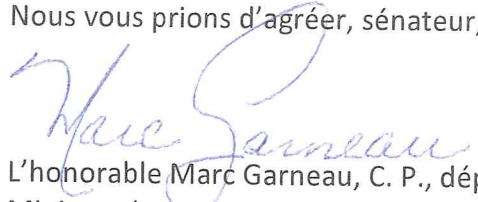 Nous vous prions d'agréer, sénateur,
Marc Garneau
L'honorable Marc Garneau, C. P., dép